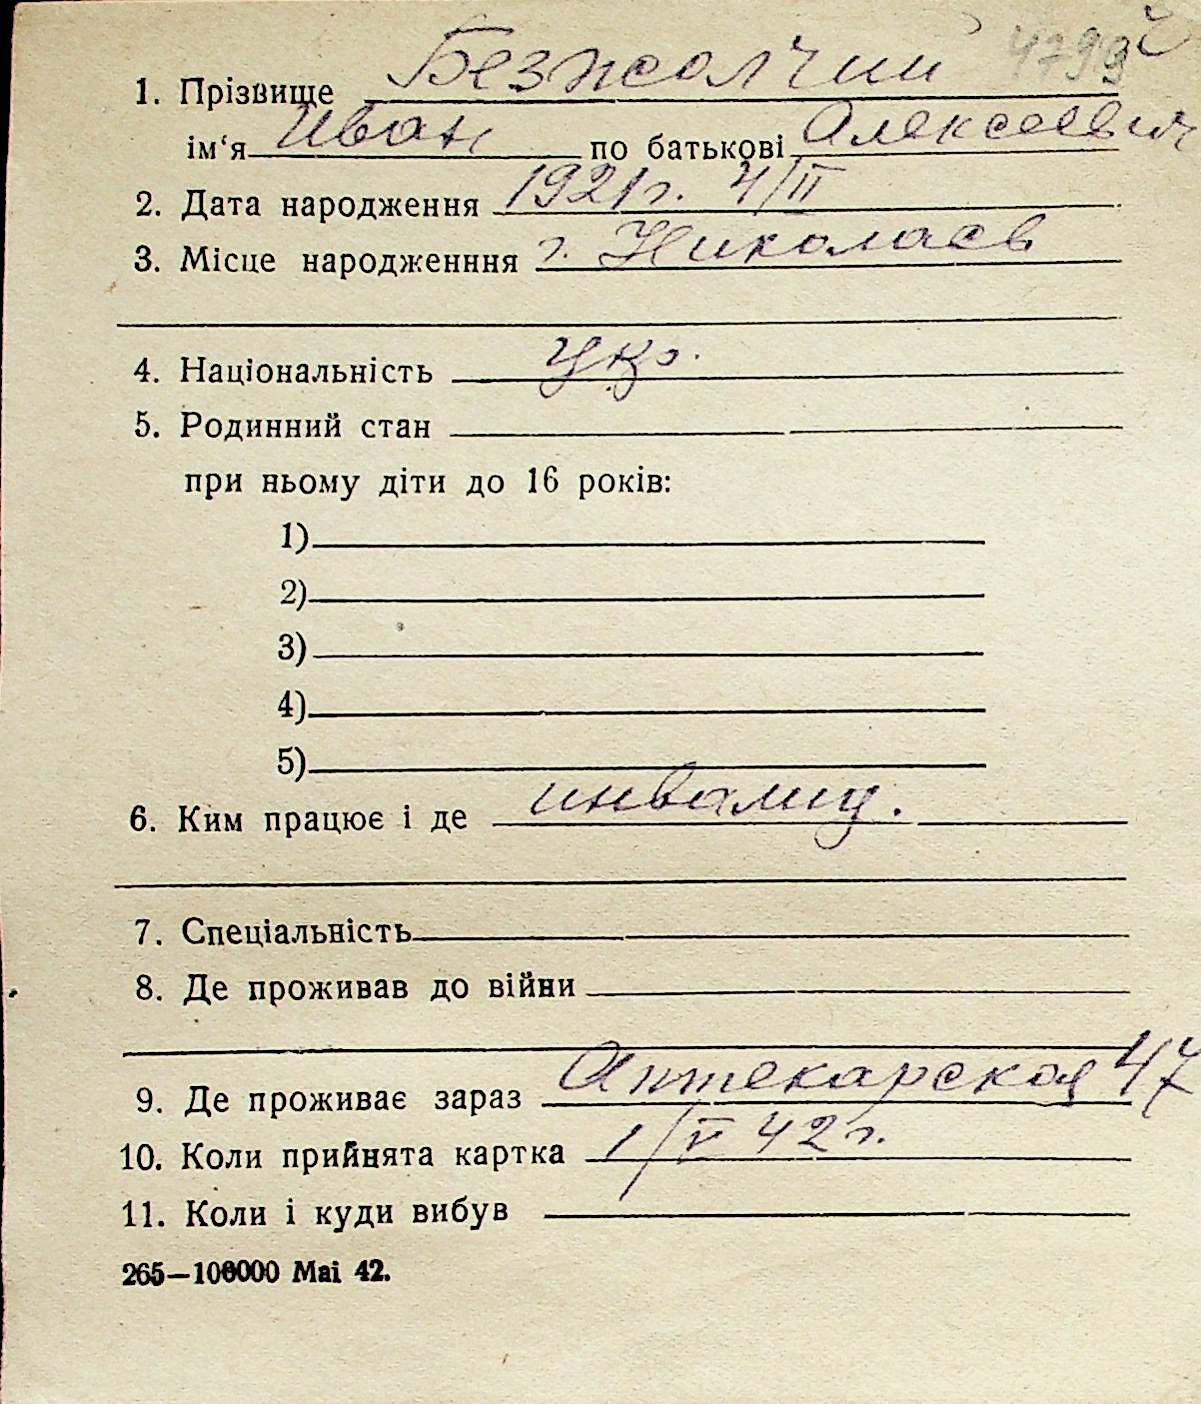 1. Прізвище Безжолчий
ім‘я Иван по батькові Алексеевич
2. Дата народження 1921г. 4/II
3. Місце народженння г. Николаев
4. Національність Укр.
5. Родинний стан
при ньому діти до 16 років:
1)
2)
3)
4)
5)
6. Ким працює і де инвалид.
7. Спеціальність
8. Де проживав до війни
9. Де проживає зараз Аптекарская 47
10. Коли прийнята картка 1/V 42 г.
11. Коли і куди вибув
265—100000 Mai 42.